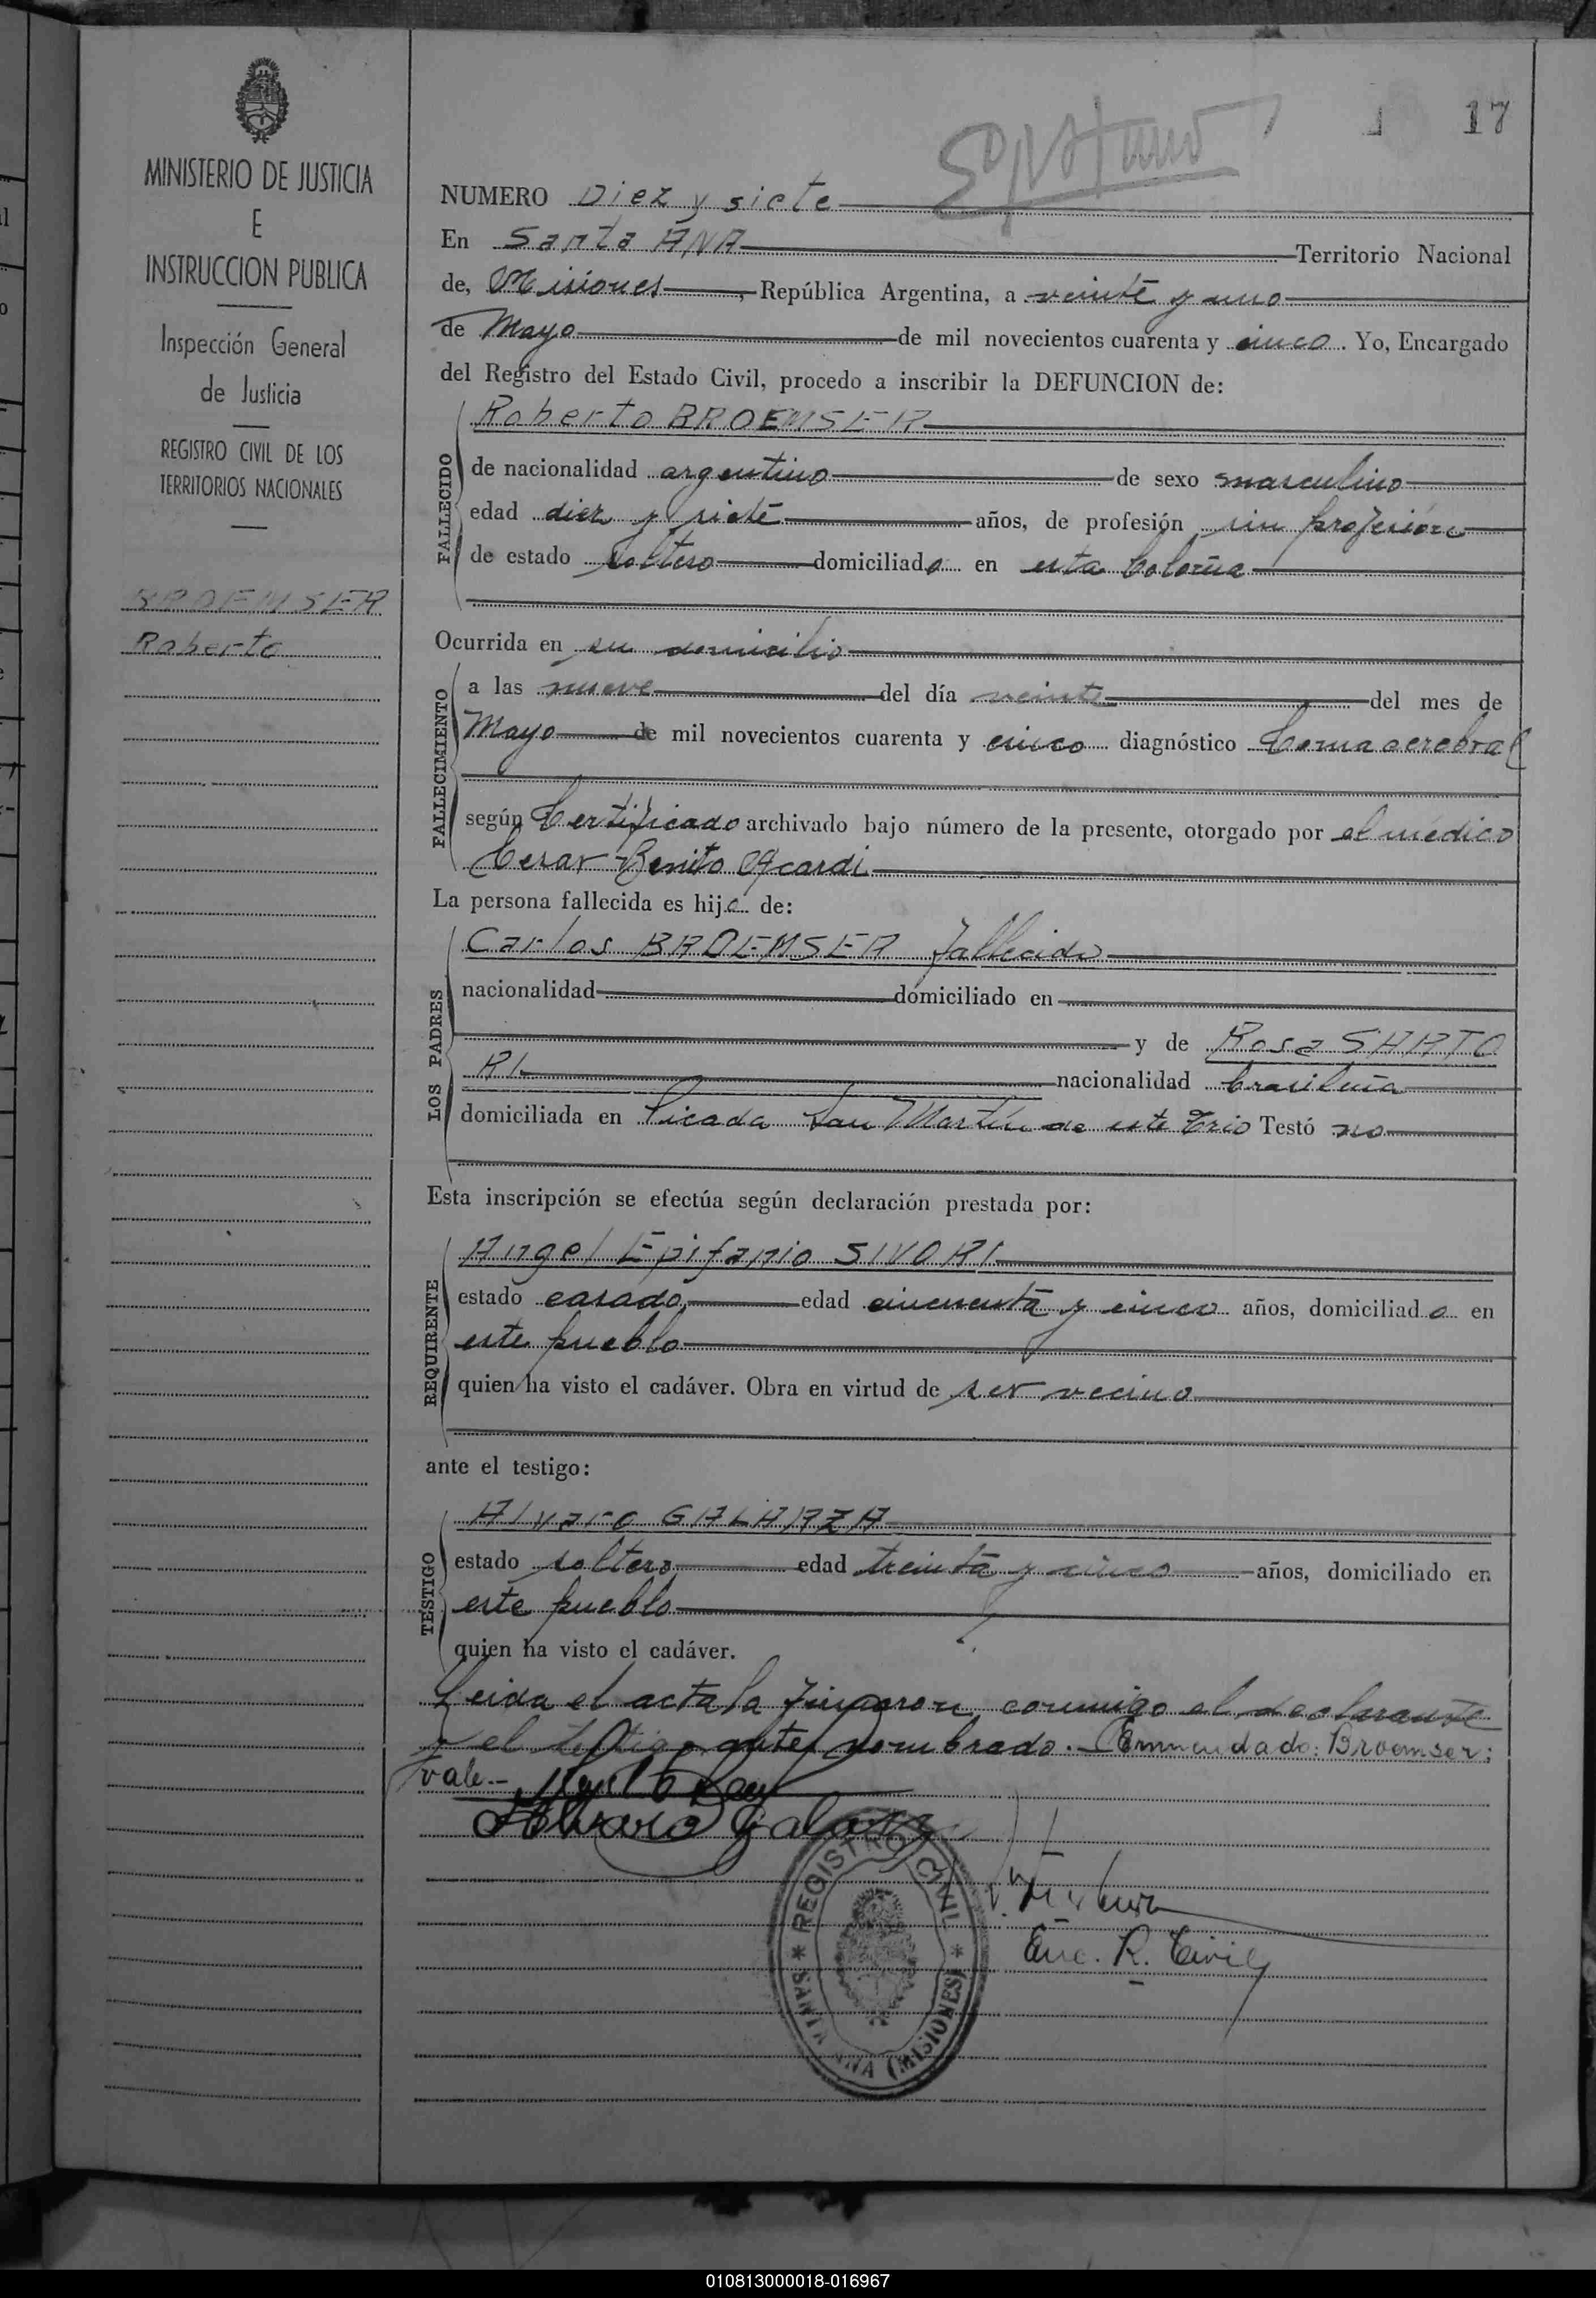 17
MINISTERIO DE JUSTICIA
E
INSTRUCCION PUBLICA
Inspección General
de Justicia
REGISTRO CIVIL DE LOS
TERRITORIOS NACIONALES
BROEMSER
Roberto
NUMERO Diez y siete
En Santa ANA Territorio Nacional
de, Misiones, República Argentina, a veinte y uno
de Mayo de mil novecientos cuarenta y cinco. Yo, Encargado
del Registro del Estado Civil, procedo a inscribir la DEFUNCION de:
FALLECIDO
Roberto BROEMSER
de nacionalidad argentino de sexo masculino
edad diez y siete años, de profesión sin profesión
de estado soltero domiciliado en esta Colonia
Ocurrida en su domicilio
FALLECIMIENTO
a las nueve del día veinte del mes de
Mayo de mil novecientos cuarenta y cinco diagnóstico Coma cerebral
según Certificado archivado bajo número de la presente, otorgado por el médico
Cesar Benito Acardi
La persona fallecida es hijo de:
LOS PADRES
Carlos BROEMSER fallecido
nacionalidad domiciliado en
y de Rosa SARTO
RI nacionalidad brasileña
domiciliada en Picada San Martín de este Trio Testó no
Esta inscripción se efectúa según declaración prestada por:
REQUIRENTE
Angel Epifanio SIVORI
estado casado edad cincuenta y cinco años, domiciliado en
este pueblo
quien ha visto el cadáver. Obra en virtud de ser vecino
ante el testigo:
TESTIGO
Alvaro GALARZA
estado soltero edad treinta y cinco años, domiciliado en
este pueblo
quien ha visto el cadáver.
Leida el acta la firmaron conmigo el declarante
y el testigo antes nombrado.- Enmendado: Broemser:
vale.-
Alvaro Galarza
Enc. R. Civil
REGISTRO CIVIL
SANTA ANA (MISIONES)
010813000018-016967